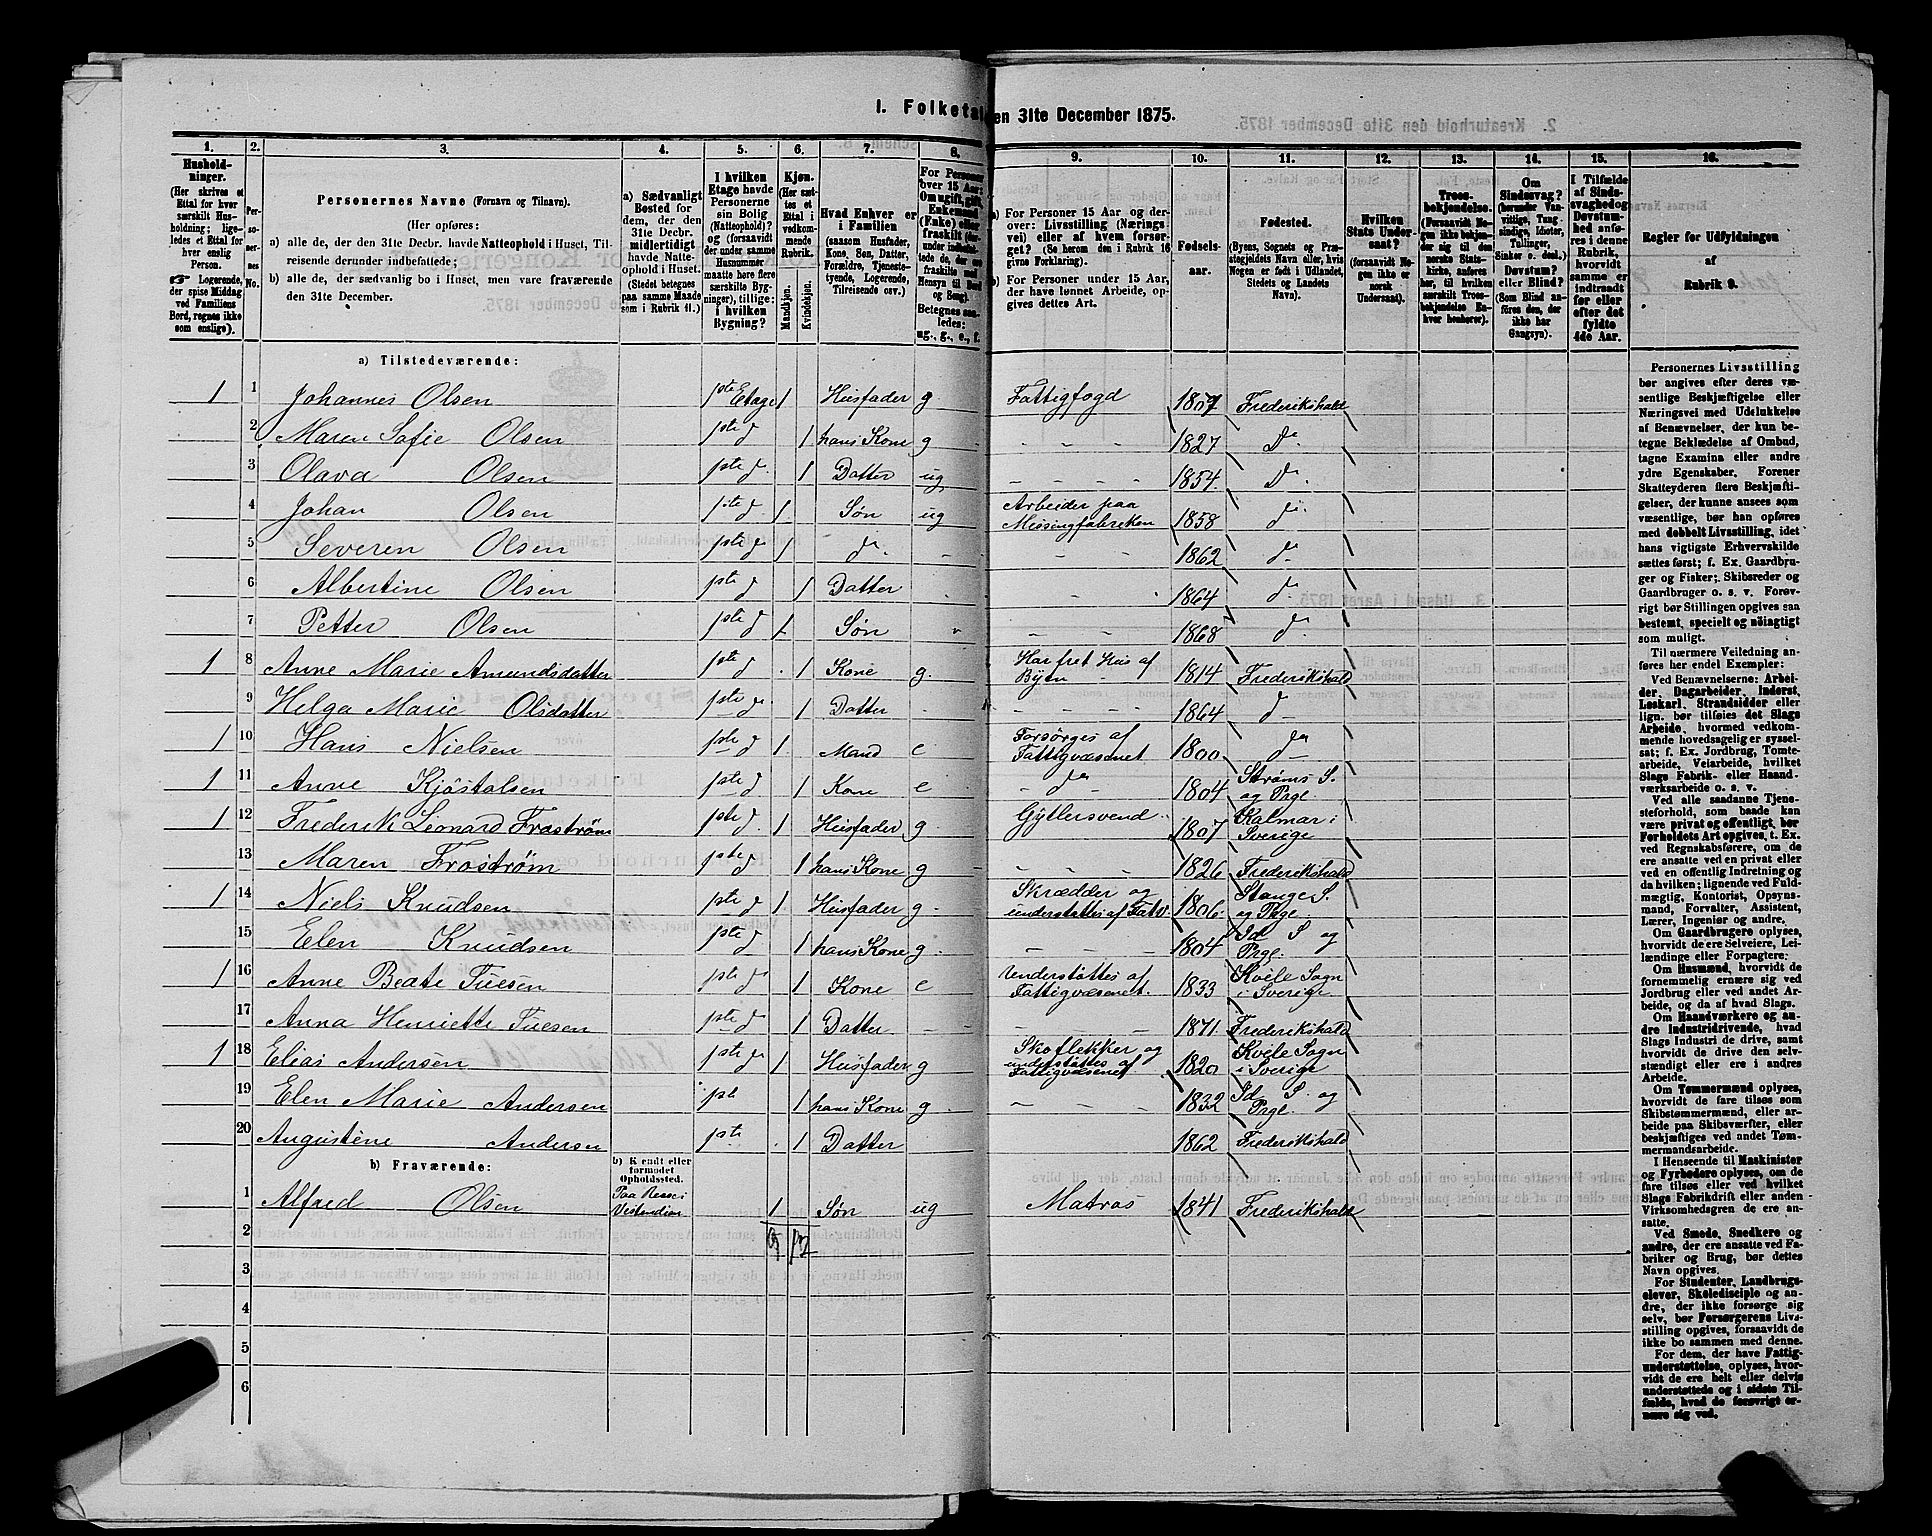 I. Folketal en 31te December 1875.
1. 2. 3. 4. 5. 6. 7. 8. 9. 10. 11. 12. 13. 14. 15. 16.
Husholdninger.
(Her skrives et Ettal for hver særskilt Husholdning; ligeledes et Ettal for hver enslig Person.
Logerende, der spise Middag ved Familiens Bord, regnes ikke som enslige).
Personernes No.
Personernes Navne (Fornavn og Tilnavn).
(Her opføres:
a) alle de, der den 31te Decbr. havde Natteophold i Huset, Tilreisende derunder indbefattede;
b) alle de, der sædvanlig bo i Huset, men vare fraværende den 31te December.
a) Sædvanligt Bosted for dem, der den 31te Decbr. midlertidigt havde Natteophold i Huset. (Stedet betegnes paa samme Maade som i Rubrik 11.)
I hvilken Etage havde Personerne sin Bolig (Natteophold)? og (forsaavidt der under samme Husnummer maatte høre flere særskilte Bygninger), tillige: i hvilken Bygning?
Kjøn. (Her sættes et Ettal i vedkommende Rubrik.
Mandkjøn. Kvindekjøn.
Hvad Enhver er i Familien (saasom Husfader, Kone, Søn, Datter, Forældre, Tjenestetyende, Logerende, Tilreisende osv.)
For Personer over 15 Aar: Om ugift, gift, Enkemand (Enke) eller fraskilt
Betegnes saaledes: ug., g., e., f.
a) For Personer 15 Aar og derover: Livsstilling (Næringsvei) eller af hvem forsørget? (Se herom den i Rubrik 16 givne Forklaring).
b) For Personer under 15 Aar, der have lønnet Arbeide, opgives dettes Art.
Fødselsaar.
Fødested.
(Byens, Sognets og Præstegjeldets Navn, eller, hvis Nogen er født i Udlandet, Stedets og Landets Navn).
Hvilken Stats Undersaat? (forsaavidt Nogen ikke er norsk Undersaat).
Troesbekjendelse. (Forsaavidt Nogen ikke bekjender sig til den norske Statskirke, anføres her, til hvilken særskilt Troesbekjendelse Enhver henhører).
Om Sindssvag? (herunder Vanvittige, Tungsindige, Idioter, Tullinger, Sinker o. desl.) Døvstum? eller Blind? (Som Blind anføres den, der ikke har Gangsyn).
I Tilfælde af Sindssvaghed og Døvstumhed anføres i denne Rubrik, hvorvidt samme er indtraadt før eller efter det fyldte 4de Aar.
Regler for Udfyldningen af Rubrik 9.
a) Tilstedeværende:
1 1 Johannes Olsen 1ste Etage 1 Husfader g Fattigfogd 1807 Frederikshald
2 Maren Sofie Olsen 1ste d 1 hans Kone g - - - 1827 Do
3 Olava Olsen 1ste d. 1 Datter ug - - - 1854. Do
4 Johan Olsen 1ste d 1. Søn ug Arbeider paa Messingfabriken 1858 do
5 Severen Olsen 1ste do 1 do. - - - 1862 do
6 Albertine Olsen 1ste d 1 Datter 1864 do
7 Petter Olsen 1ste d 1 Søn - - - 1868 do
1 8 Anne Marie Amundsdatter 1ste d 1 Kone g. Har fret Hus af Byen 1814 Frederikshald
9 Helga Marie Olsdatter 1ste do 1 Datter - - - 1864 do
1 10 Hans Nielsen 1ste d 1. Mand e Forsørges af Fattigvæsenet 1800 do
1 11 Anne Kjøstolsen 1ste d 1 Kone e - do - 1804 Strøms S. og Prgl.
1 12 Frederik Leonard Frostrøm 1ste d. 1 Husfader g. Gytlersvend 1807 Kalmar i Sverige
13 Maren Frostrøm 1ste d 1 hans Kone g - - - 1826 Frederikshald
1 14 Niels Knudsen 1ste d 1 Husfader g Skrædder og understøttes af Fatv. 1806 Stange S. og Prgl.
15 Elen Knudsen 1ste d 1 hans Kone g - - - 1804 Id S og Prgl.
1 16 Anne Beate Tuesen 1ste d 1 Kone e Understøttes af Fattigvæsenet. 1833 Kvile Sogn i Sverige
17 Anna Henriette Tuesen 1ste d 1 Datter - - - 1871 Frederikshald
1 18 Elias Andersen 1ste do 1 Husfader g Skoflekker og understøttes af Fattigvæsenet 1820 Kvile Sogn i Sverige
19 Elen Marie Andersen 1ste 1 hans Kone g - - - 1832 Id S. og Prgl.
20 Augustine Andersen 1ste 1 Datter 1862 Frederikshald
b) Fraværende:
b) Kjendt eller formodet Opholdssted.
1 Alfred Olsen Paa Reise i Vestindien 1 Søn ug Matros 1841 Frederikshald
2
3
4
5
6
Personernes Livsstilling
bør angives efter deres væ-
sentlige Beskjæftigelse eller
Næringsvei med Udelukkelse
af Benævnelser, der kun be-
tegne Beklædelse af Ombud,
tagne Examina eller andre
ydre Egenskaber. Forener
Skatteyderen flere Beskjæfti-
gelser, der kunne ansees som
væsentlige, bør han opføres
med dobbelt Livsstilling, idet
hans vigtigste Erhvervskilde
sættes først; f. Ex. Gaardbru-
ger og Fisker; Skibsreder og
Gaardbruger o. s. v. Forøv-
rigt bør Stillingen opgives saa
bestemt, specielt og nøiagtigt
som muligt.
Til nærmere Veiledning an-
føres her endel Exempler:
Ved Benævnelserne: Arbei-
der, Dagarbeider, Inderst,
Løskarl, Strandsidder eller
lign. bør tilføies det Slags
Arbeide, hvormed vedkom-
mende hovedsagelig er syssel-
sat; f. Ex. Jordbrug, Tomte-
arbeide, Veiarbeide, hvilket
Slags Fabrik- eller Haand-
værksarbeide o. s. v.
Ved alle saadanne Tjene-
steforhold, som baade kan
være privat og offentligt, bør
Forholdets Art opgives, t. Ex.
ved Regnskabsførere, om de
ere ansatte ved en privat eller
ved en offentlig Indretning og
da hvilken; lignende ved Fuld-
mægtig, Kontorist, Opsyns-
mand, Forvalter, Assistent,
Lærer, Ingeniør og andre.
Om Gaardbrugere oplyses,
hvorvidt de ere Selveiere, Lei-
lændinge eller Forpagtere.
Om Husmænd, hvorvidt de
fornemmelig ernære sig ved
Jordbrug eller ved andet Ar-
beide, og da af hvad Slags.
Om Haandværkere og an-
dre Industridrivende, hvad
Slags Industri de drive, samt
hvorvidt de drive den selv-
stændigt eller ere i andres
Arbeide.
Om Tømmermænd oplyses,
hvorvidt de fare tilsøs som
Skibstømmermænd, eller ar-
beide paa Skibsværfter, eller
beskjæftiges ved andet Tøm-
mermandsarbeide.
I Henseende til Maskinister
og Fyrbødere oplyses, om de
fare tilsøs eller ved hvilket
Slags Fabrikdrift eller anden
Virksomhedsgren de ere an-
satte.
Ved Smede, Snedkere og
andre, der ere ansatte ved Fa-
briker og Brug, bør dettes
Navn opgives.
For Studenter, Landbrugs-
elever, Skoledisciple og an-
dre, der ikke forsørge sig
selv, bør Forsørgerens Livs-
stilling opgives, forsaavidt de
ikke bo sammen med denne.
For dem, der have Fattig-
understøttelse, oplyses, hvor-
vidt de ere helt eller delvis
understøttede og i sidste Til-
fælde, hvad de forøvrigt er-
nære sig ved.